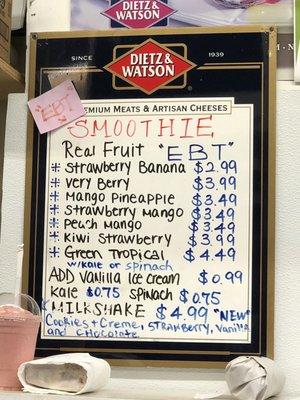 DIETZ & WATSON
SINCE DIETZ & WATSON 1939
PREMIUM MEATS & ARTISAN CHEESES
"EBT"
SMOOTHIE
Real Fruit "EBT"
# Strawberry Banana $2.99
# Very Berry $3.99
# Mango Pineapple $3.49
# Strawberry Mango $3.49
# Peach Mango $3.49
# Kiwi Strawberry $3.99
# Green Tropical $4.49
w/kale or spinach
ADD Vanilla Ice cream $0.99
Kale $0.75 Spinach $0.75
MILKSHAKE $4.99 "NEW"
Cookies + Creme, STRAWBERRY, Vanilla
and CHOCOlate